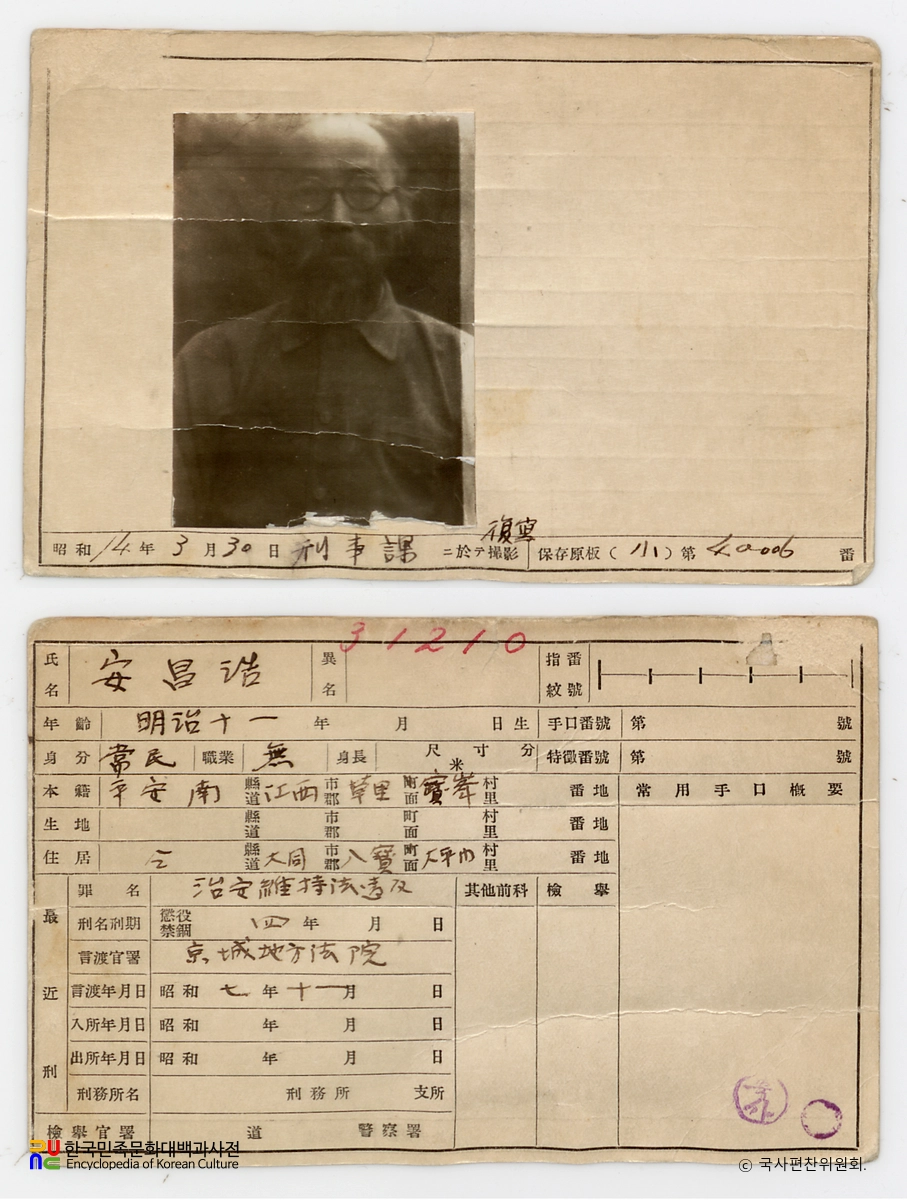 昭和 14 年 3 月 30 日 刑事課 ニ於テ撮影 複写 保存原板（小）第 40006 番
31210
氏名 安昌浩 異名 指紋番號
年齢 明治十一 年 月 日生 手口番號 第 號
身分 常民 職業 無 身長 尺寸分 米 特徵番號 第 號
本籍 平安南 縣道 江西 市郡 草里 町面 寶峯 村里 番地 常用手口概要
生地 縣道 市郡 町面 村里 番地
住居 仝 縣道 大同 市郡 八寶 町面 大平内 村里 番地
最近刑
罪名 治安維持法違反 其他前科 檢擧
刑名刑期 懲役 禁錮 四 年 月 日
言渡官署 京城地方法院
言渡年月日 昭和 七 年 十一 月 日
入所年月日 昭和 年 月 日
出所年月日 昭和 年 月 日
刑務所名 刑務所 支所
檢擧官署 道 警察署
한국민족문화대백과사전
Encyclopedia of Korean Culture
ⓒ 국사편찬위원회.